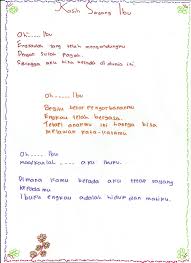 Kasih Sayang Ibu
Oh..... Ibu
Engkaulah yang telah mengandungku
Dengan susah payah
Sehingga aku bisa berada di dunia ini
Oh..... Ibu
Begitu besar pengorbananmu
Engkau telah berjasa.
Tetapi anakmu ini hanya bisa
melawan kata-katamu
Oh.... Ibu
maafkanlah .... aku ibu.
Dimana kamu berada aku tetap sayang
kepadamu
Ibu engkau adalah hidup dan matiku.